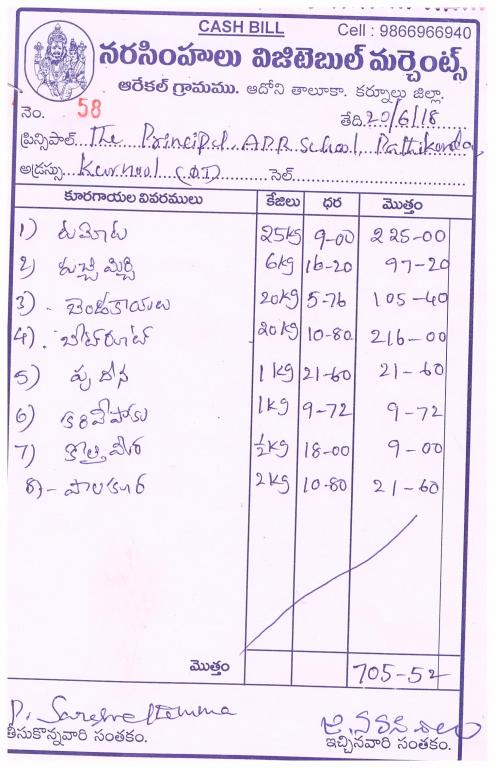 CASH BILL
Cell : 9866966940
నరసింహులు విజిటెబుల్ మర్చెంట్స్
ఆరేకల్ గ్రామము. ఆదోని తాలూకా. కర్నూలు జిల్లా.
నెం. 58 తేది. 20/6/18
ప్రిన్సిపాల్ The Principal A.P.R. School, Pathikonda,
అడ్రస్సు Kurnool (DT) సెల్
కూరగాయల వివరములు కేజిలు ధర మొత్తం
1) టమోట 25kg 9-00 225-00
2) పచ్చిమిర్చి 6kg 16-20 97-20
3) బెండకాయలు 20kg 5-76 105-40
4) బీట్‌రూట్ 20kg 10-80 216-00
5) పుదీన 1kg 21-60 21-60
6) కరివేపాకు 1kg 9-72 9-72
7) కొత్తిమీర ½kg 18-00 9-00
8) పాలకూర 2kg 10-80 21-60
మొత్తం 705-52
తీసుకొన్నవారి సంతకం. ఇచ్చినవారి సంతకం.